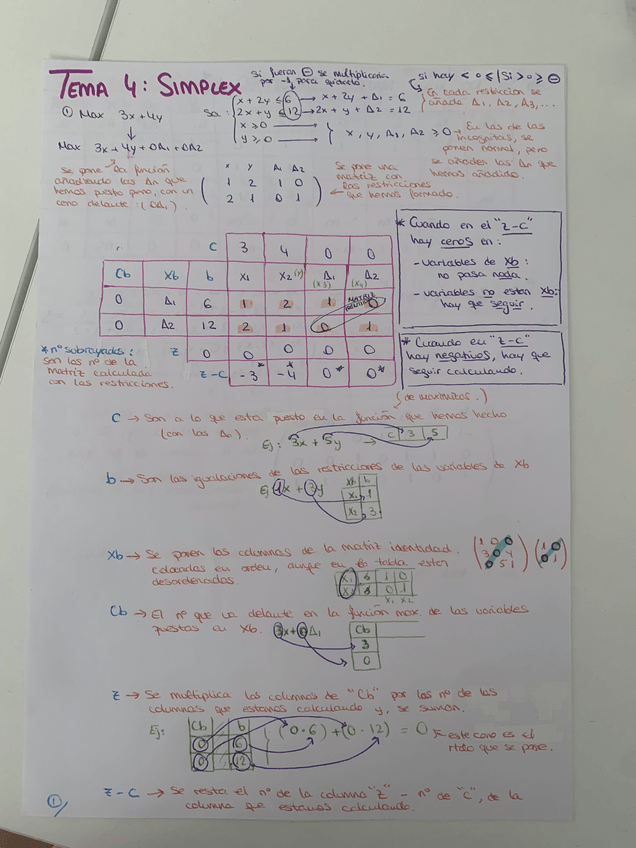 TEMA 4: SIMPLEX
Si fueran ⊖ se multiplicaria
por -1 para quitarlo.
Si hay < 0 ≤ | Si > 0 ≥ ⊖
① Max 3x + 4y
Sa:
x + 2y ≤ 6 → x + 2y + Δ1 = 6
2x + y ≤ 12 → 2x + y + Δ2 = 12
x ≥ 0
y ≥ 0
x, y, Δ1, Δ2 ≥ 0
En cada restricción se
añade Δ1, Δ2, Δ3, ...
→ En las de las
incognitas, se
ponen normal, pero
se añaden las Δn que
hemos añadido.
Max 3x + 4y + 0Δ1 + 0Δ2
se pone la función
añadiendo las Δn que
hemos puesto pero, con un
cero delante: (0Δ1).
x y Δ1 Δ2
1 2 1 0
2 1 0 1
Se pone una
matriz con
las restricciones
que hemos formado.
C 3 4 0 0
Cb Xb b X1 X2 (y) Δ1 (X3) Δ2 (X4)
0 Δ1 6 1 2 1 0
0 Δ2 12 2 1 0 1
Z 0 0 0 0 0
Z-C -3* -4* 0* 0*
* nº subrayados:
Son los nº de la
matriz calculada
con las restricciones.
* Cuando en el "Z-C"
hay ceros en:
- variables de Xb:
no pasa nada.
- variables no esten Xb:
hay que seguir.
* Cuando en "Z-C"
hay negativos, hay que
seguir calculando.
(de maximizar.)
C → Son a lo que esta puesto en la función que hemos hecho
(con las Δn).
Ej: 3x + 5y → C 3 5
b → Son las igualaciones de las restricciones de las variables de Xb
Ej: 1x + 3y
Xb b
X1 1
X2 3
Xb → Se ponen las columnas de la matriz identidad.
colocadas en orden, aunque en la tabla esten
desordenadas.
X1 X2
Cb → El nº que va delante en la función max de las variables
puestas en Xb.
3x + 0Δ1
Cb
3
0
Z → Se multiplica las columnas de "Cb" por los nº de las
columnas que estamos calculando y, se suman.
Ej:
Cb b
0 6
0 12
(0·6) + (0·12) = 0
← este cero es el
rtdo que se pone.
Z-C → Se resta el nº de la columna "Z" - nº de "C", de la
columna que estamos calculando.
①